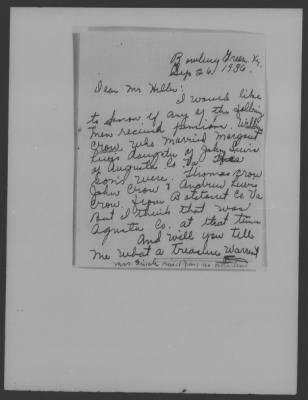 Bowling Green Ky.
Sep 26, 1936.
Dear Mr Hiller:
I would like
to know if any of the following
men received pensions. Wally
Crow who married Margaret
Lewis daughter of John Lewis
of Augusta Co. Va
sons were. Thomas Crow
John Crow & Andrew Lewis
Crow. from Botetourt Co. Va
But I think that was
Agusta Co. at that time
And will you tell
me what a treasure Warrent